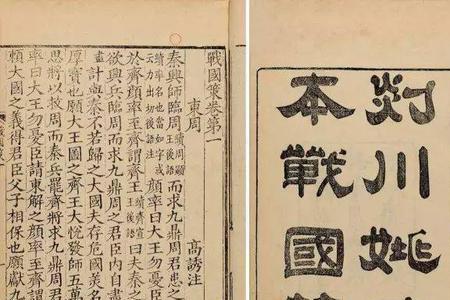 戰國策卷第一
東周 高誘注
秦興師臨周而求九鼎周君患
顏率曰大王勿憂臣
於齊顏率至齊謂齊王曰夫秦
欲興兵臨周而求九鼎周之君臣內自
畫計與秦不若歸之大國夫存危國美名
厚寶也願大王圖之齊王大悅發師五萬
思將以救周而秦兵罷齊將求九鼎周
率曰大王勿憂臣請東解之顏率至齊
賴大國之義得君臣父子相保也願獻九
剡川姚
本戰國